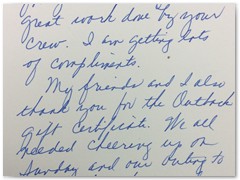 great work done by your
crew. I am getting lots
of compliments.
My friends and I also
thank you for the Outback
gift certificate. We all
needed cheering up on
Sunday and our outing to